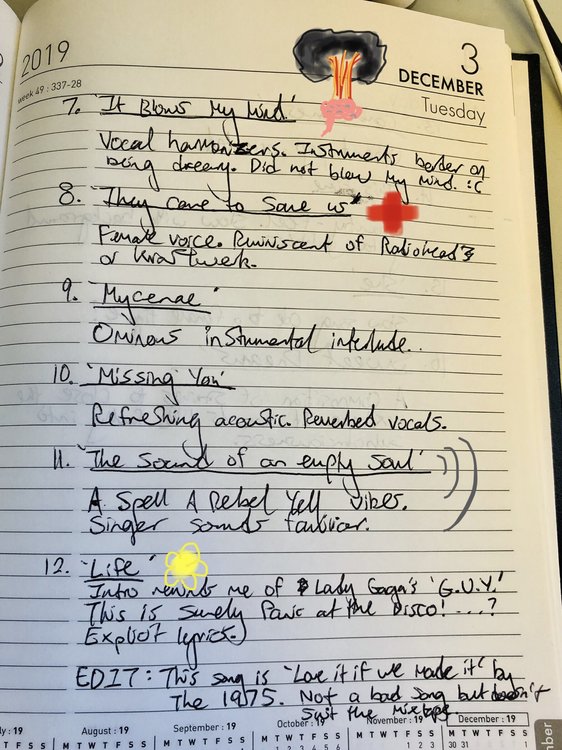 2019
week 49 : 337-28
3
DECEMBER
Tuesday
7. 'It Blows My Mind'
Vocal harmonizers. Instruments border on
being dreary. Did not blow my mind. :c
8. 'They came to save us'
Female voice. Reminiscent of Radiohead
or Kraftwerk.
9. 'Mycenae'
Ominous instrumental interlude..
10. 'Missing You'
Refreshing acoustic. Reverbed vocals.
11. 'The sound of an empty soul'
A Spell A Rebel Yell vibes.
Singer sounds familiar.
12. 'Life'
Intro reminds me of Lady Gaga's 'G.U.Y.'
This is surely Panic at the Disco! ...?
Explicit lyrics.
EDIT: This song is 'Love it if we made it' by
The 1975. Not a bad song but doesn't
suit the mixtape.
ly : 19 August : 19 September : 19 October : 19 November : 19 December : 19
T F S S M T W T F S S M T W T F S S M T W T F S S M T W T F S S M T W T F S S
1 2 3 4 5 6 1 2 30 31
mber